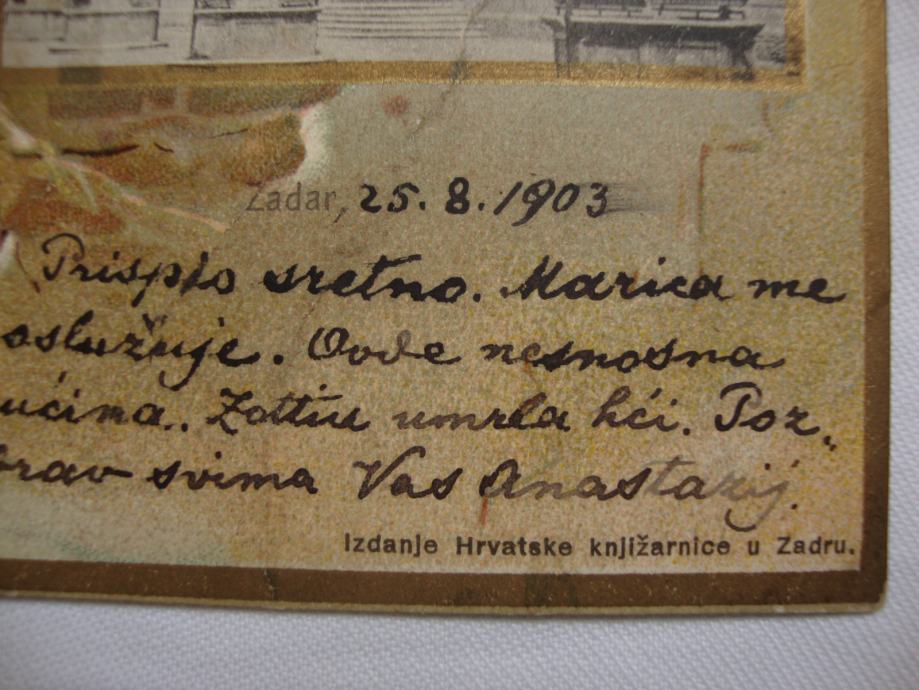 Zadar, 25. 8. 1903
Prispio sretno. Marica me
oslužuje. Ovde nesnosna
ućina. Zottiu umrla kći. Poz„
drav svima Vas Anastazij.
Izdanje Hrvatske knjižarnice u Zadru.